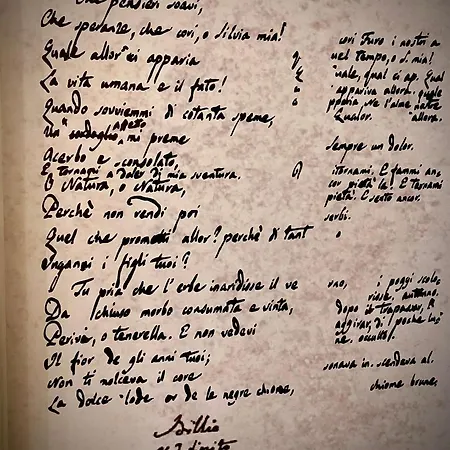 Che pensieri soavi,
Che speranze, che cori, o Silvia mia!
Quale allor ci apparia
La vita umana e il fato!
Quando sovviemmi di cotanta speme,
Un affetto mi preme
Acerbo e sconsolato,
E tornami a doler di mia sventura.
O Natura, o Natura,
Perchè non rendi poi
Quel che prometti allor? perchè di tant
Inganni i figli tuoi?
Tu pria che l'erbe inaridisse il ve
Da chiuso morbo consumata e vinta,
Perivi, o tenerella. E non vedevi
Il fior de gli anni tuoi;
Non ti molceva il core
La dolce lode or de le negre chiome,
cori Furo i nostri a
nel tempo, o S. mia!
uale, qual ci ap. Qual
appariva allora. quale
pparia. Ne l'alme nostre
Qualor. allora.
sempre un dolor.
itornami. E fammi an
cor pietà
E tornami
pietà. E sento ancor.
serbi.
o
rno, i poggi scolo
risse, autunno.
dopo il trapassar,
aggirar, di
ne, occulto.
sonava in. scendeva al.
chiome brune,